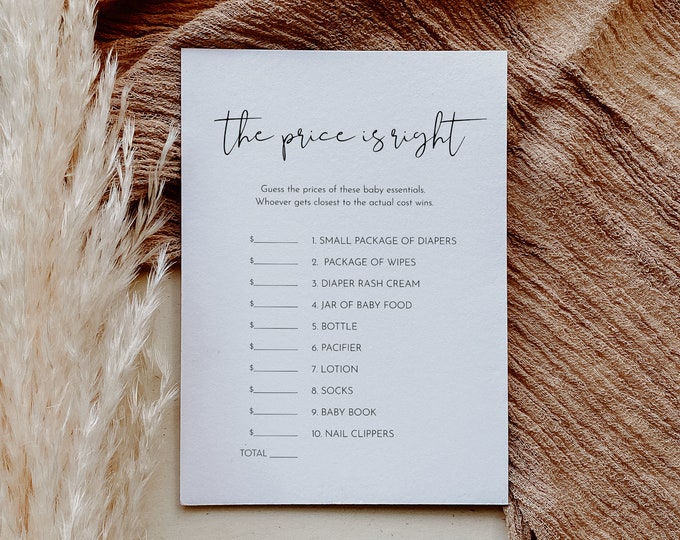 the price is right
Guess the prices of these baby essentials.
Whoever gets closest to the actual cost wins.
$______ 1. SMALL PACKAGE OF DIAPERS
$______ 2. PACKAGE OF WIPES
$______ 3. DIAPER RASH CREAM
$______ 4. JAR OF BABY FOOD
$______ 5. BOTTLE
$______ 6. PACIFIER
$______ 7. LOTION
$______ 8. SOCKS
$______ 9. BABY BOOK
$______ 10. NAIL CLIPPERS
TOTAL ____